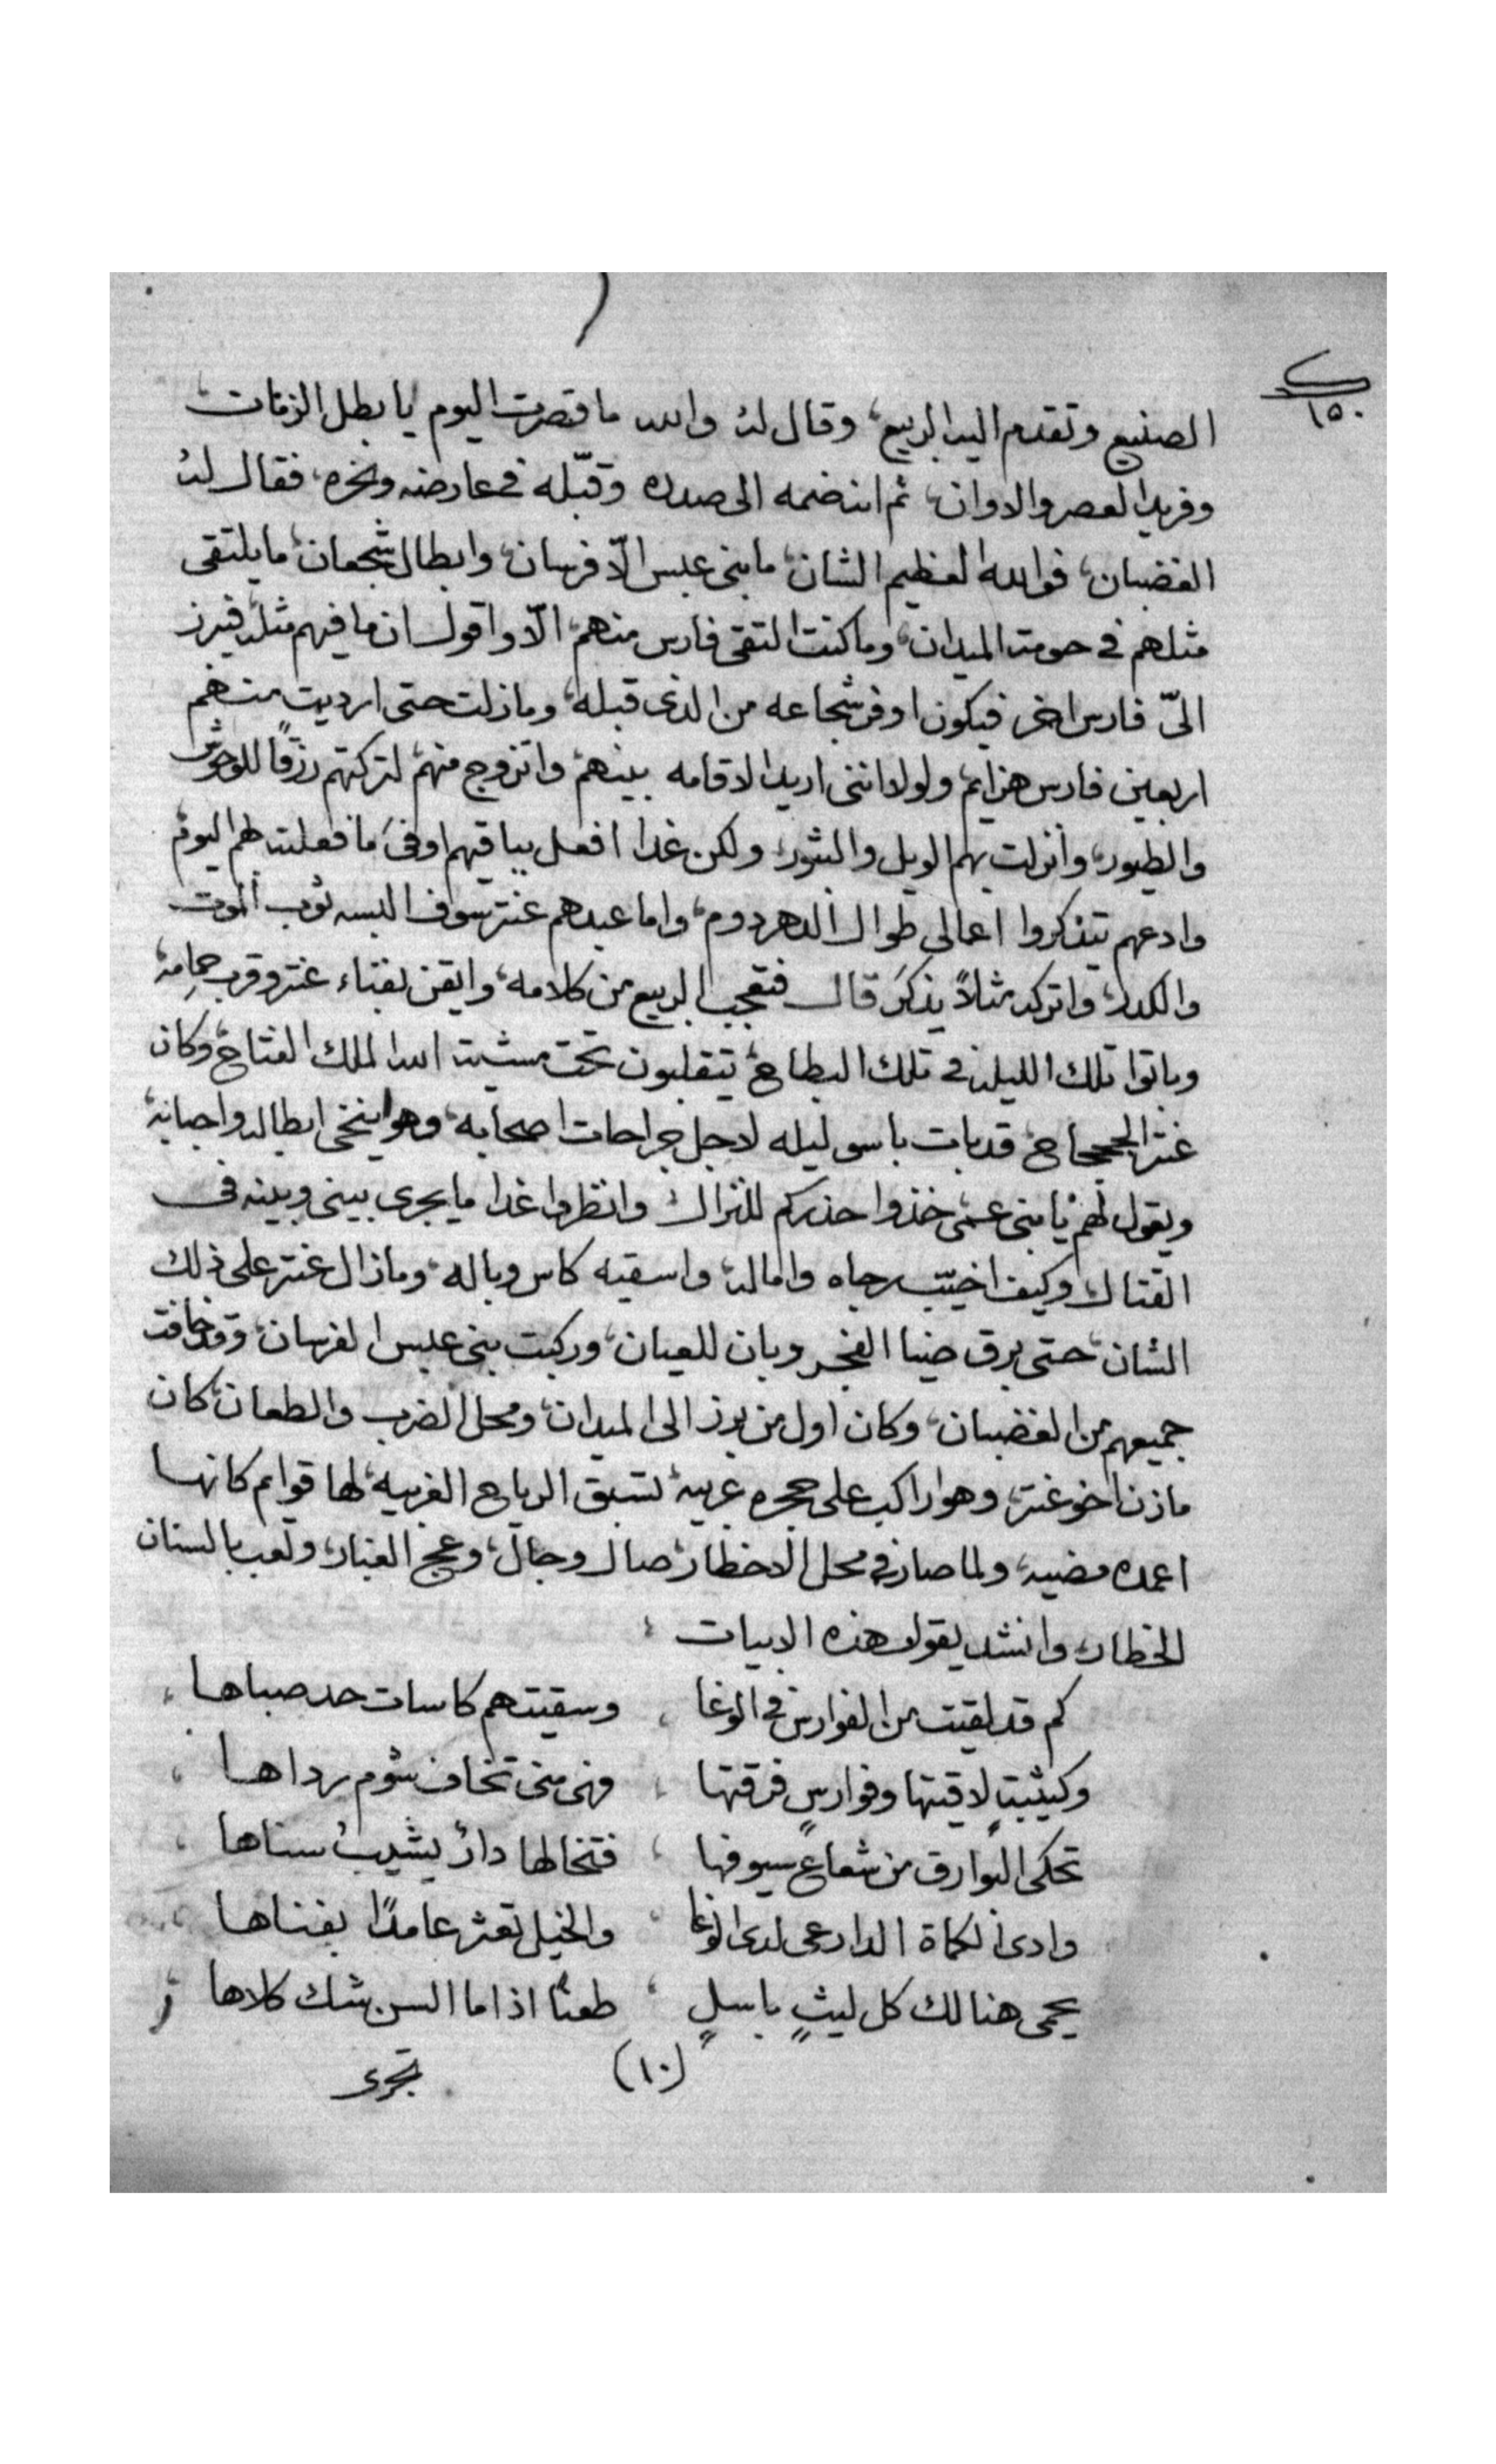 ١٥٠
الصنيع وتقدم اليه الربيع، وقال له والله ما قصرت اليوم يا بطل الزمان،
وفريد العصر والاوان، ثم انه ضمه الى صدره وقبّله في عارضه ونحره، فقال له
الغضبان، فوالله العظيم الشان، ما بني عبس الّا فرسان، وابطال شجعان، ما يلتقى
مثلهم في حومة الميدان، وما كنت التقى فارس منهم، الّا واقول ان ما فيهم مثله، فيبرز
اليّ فارس اخر فيكون اوفر شجاعه من الذى قبله، وما زلت حتى ارديت منهم
اربعين فارس هزايم، ولولا اننى اريد الاقامه بينهم، واتزوج منهم، لتركتهم رزقًا للوحوش
والطيور، وانزلت بهم الويل والثبور، ولكن غدا افعل بباقيهم اوفى ما فعلت بهم اليوم،
وادعهم يتذكروا اعمالى طوال الدهر دوم، واما عبدهم عنتر سوف البسه ثوب الموت
والكدر، واتركه مثلاً يذكر، قال فتعجب الربيع من كلامه، وايقن بفناء عنتر وقرب حِمامه،
وباتوا تلك الليلة في تلك البطاح، يتقلبون تحت مشيت الله الملك الفتاح، وكان
عنتر الججحاح، قد بات باسو ليله لاجل جراحات اصحابه، وهو ينخى ابطاله واحبابه،
ويقول لهم، يا بنى عمى خذوا حذركم للنزال، وانظروا غدا ما يجرى بينى وبينه فى
القتال، وكيف اخيّب رجاه واماله، واسقيه كاس وباله، وما زال عنتر على ذلك
الشان، حتى برق ضيا الفجر وبان للعيان، وركبت بنى عبس الفرسان، وقد خافت
جميعهم من الغضبان، وكان اول من برز الى الميدان، ومحل الضرب والطعان، كان
مازن اخو عنتر، وهو راكب على حجره عربيه، تسبق الرياح الغربيه، لها قوايم كانها
اعمده مضيه، ولما صار في محل الاخطار، صال وجال، وعجج الغبار، ولعب بالسنان
الخطار، وانشد يقول هذه الابيات ،
كم قد لقيت من الفوارس في الوغا ، وسقيتهم كاسات حد صباها ،
وكيثبةٍ لاقيتها وفوارسٍ فرقتها ، فهى منى تخاف شوم رداها ،
تحكى البوارق من شعاع سيوفها ، فتخالها دارٌ يشيبُ سناها ،
وادى الكماة الدارعى لدى الوغا ، والخيل تعثر عامدًا بفناها ،
يحمى هنالك كل ليثٍ باسلٍ ، طعنًا اذا ما السن شك كلاها ،
(١٠)
تجرى